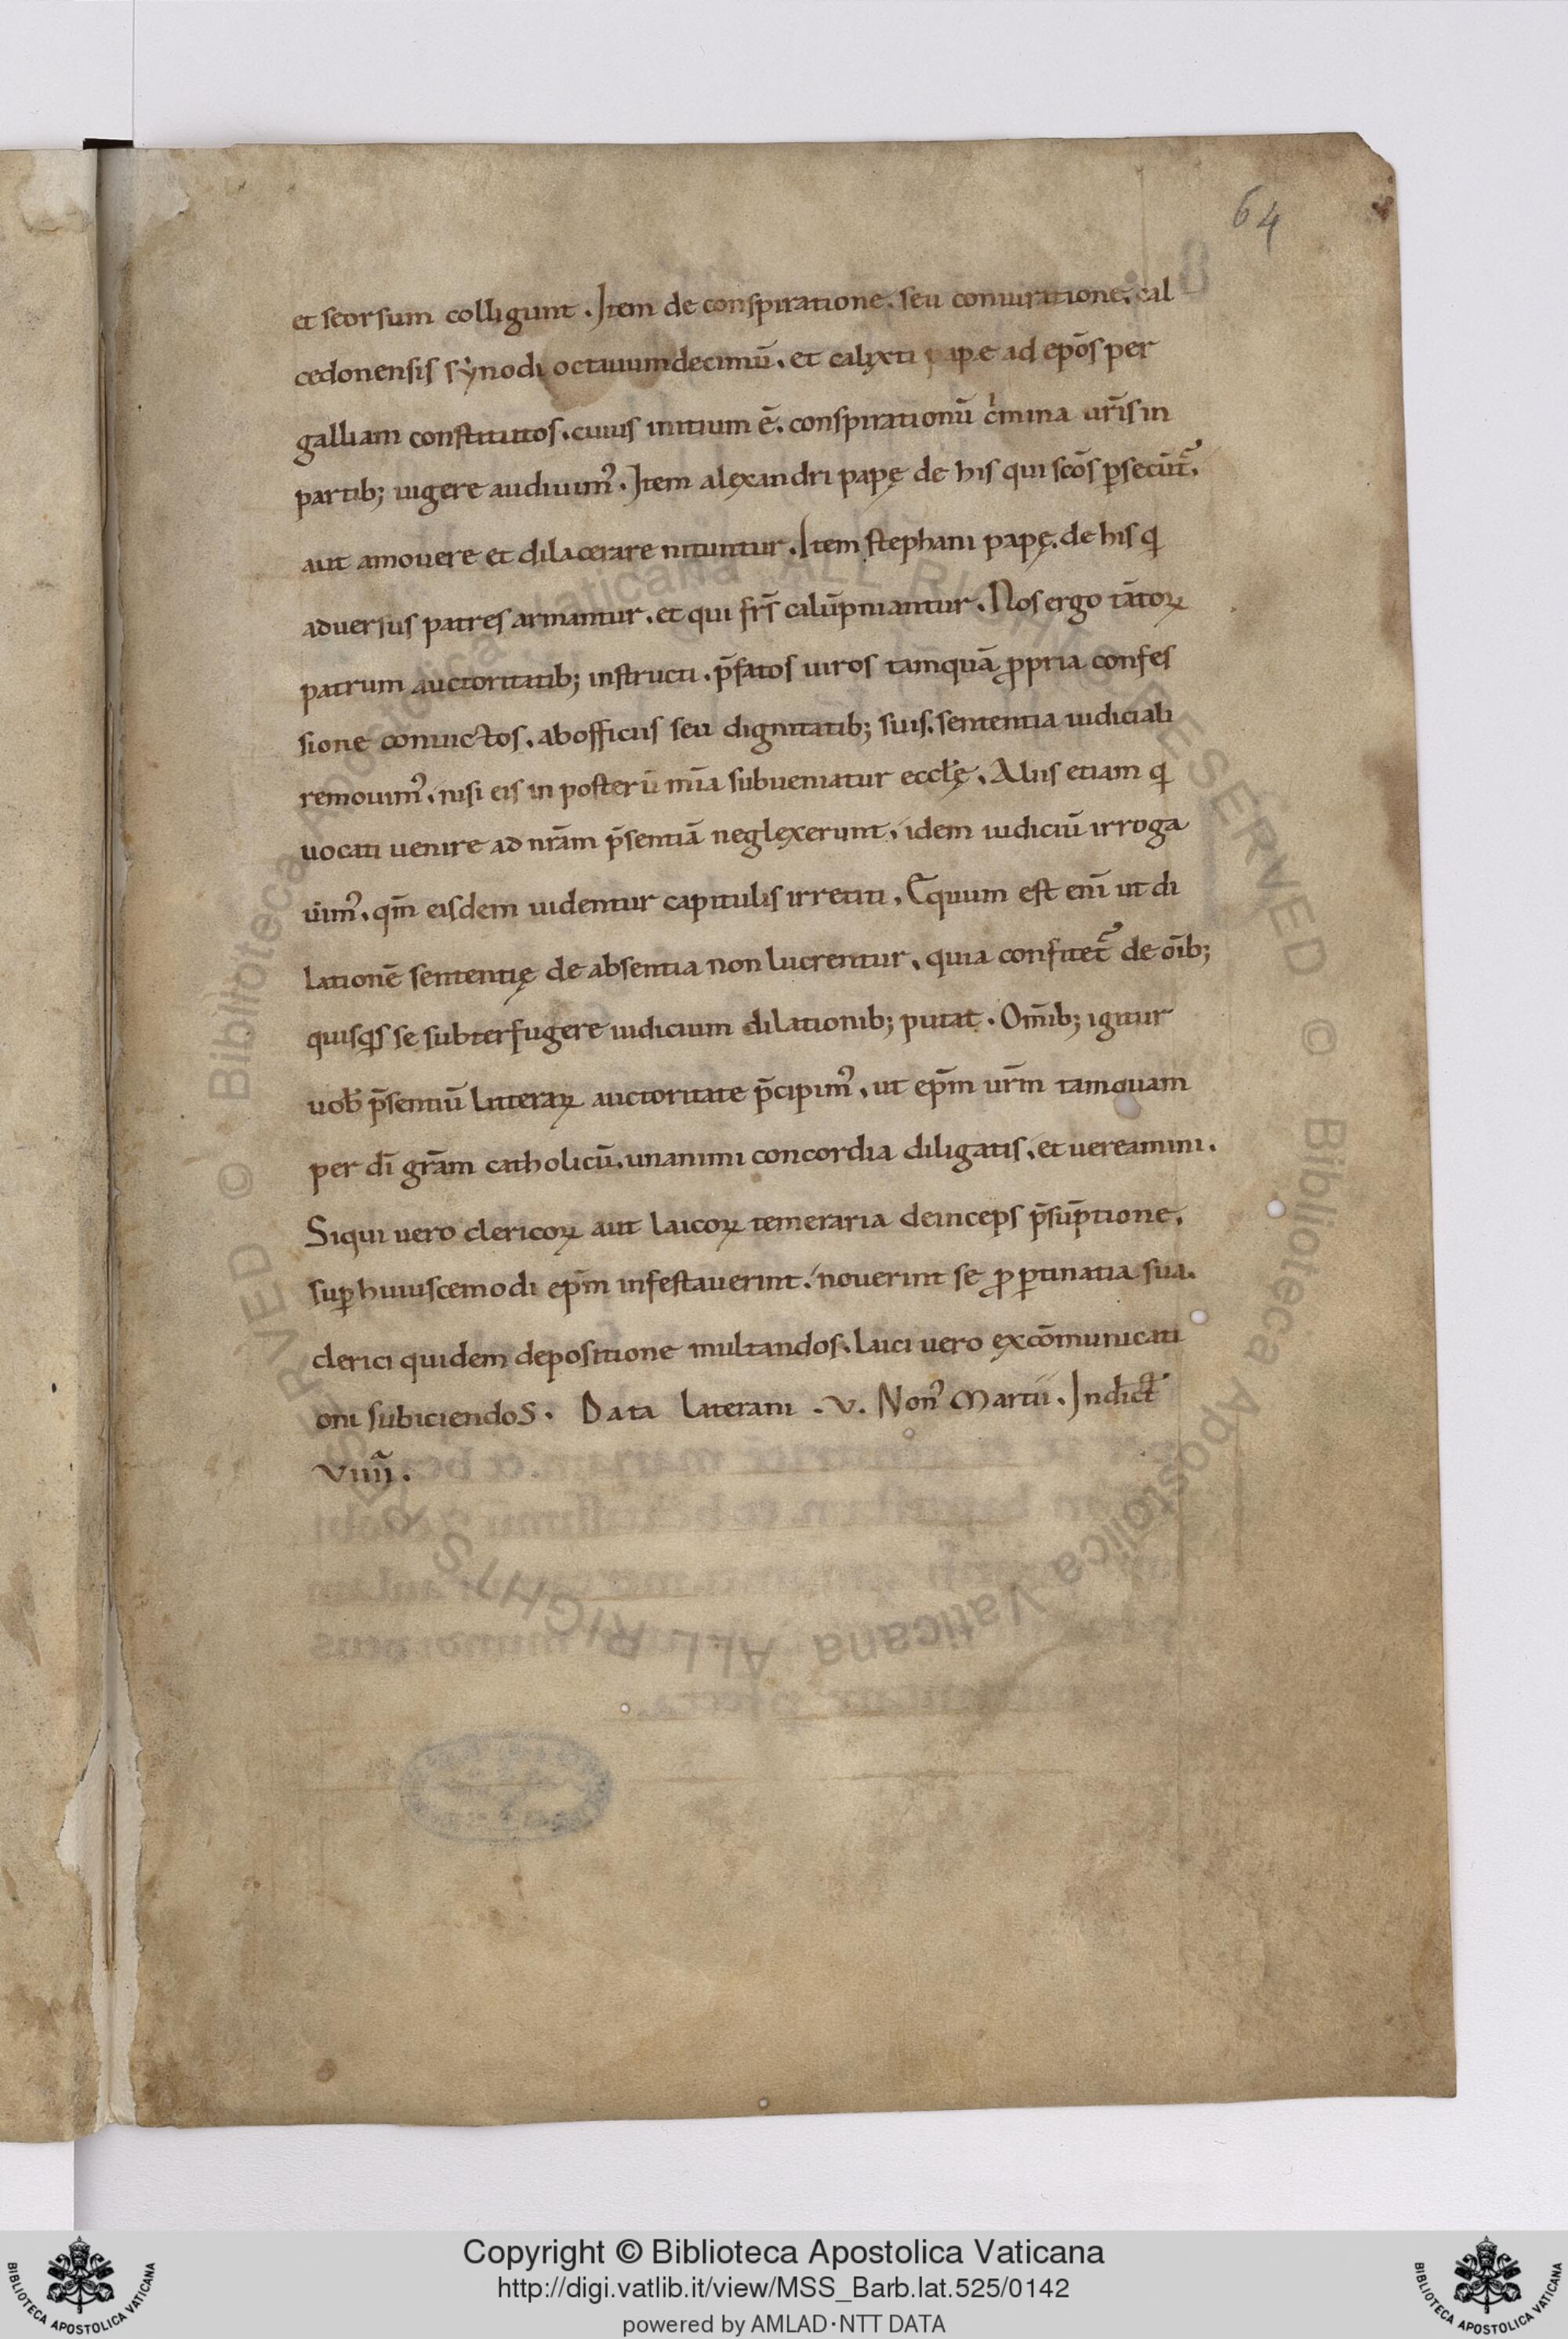 64
et seorsum colligunt. Item de conspiratione. seu coniuratione. cal
cedonensis synodi octauumdecimū. et calixti pape ad ep̄os per
galliam constitutos. cuius initium ē. conspirationū c̍mina ur̄is in
partib; uigere audiuim᾽. Item alexandri papę de his qui sc̄os ꝑsecūt̄᾽.
aut amouere et dilacerare nituntur. Item stephani papę. de his q̍
aduersus patres armantur. et qui fr̄s calūpniantur. Nos ergo tātoꝝ
patrum auctoritatib; instructi. p̄fatos uiros tamquā ꝓpria confes
sione conuictos. ab officiis seu dignitatib; suis. sententia iudiciali
remouim᾽. nisi eis in posterū mīa subueniatur eccl̄ę. Aliis etiam q̍
uocati uenire ad nr̄am p̄sentiā neglexerunt. idem iudiciū irroga
uim᾽. qm̄ eisdem uidentur capitulis irretiti. Ęquum est enī ut di
lationē sententię de absentia non lucrentur. quia confitet̄᾽ de oīb;
quisq̍s se subterfugere iudicium dilationib; putat. Om̄ib; igitur
uob̄ p̄sentiū litteraꝝ auctoritate p̄cipim᾽. ut ep̄m ur̄m tamquam
per dī gr̄am catholicū. unanimi concordia diligatis. et uereamini.
Siqui uero clericoꝝ aut laicoꝝ temeraria deinceps p̄sūptione.
suꝑ huiuscemodi ep̄m infestauerint. nouerint se ꝓ ꝑtinatia sua.
clerici quidem depositione multandos. laici uero excōmunicati
oni subiciendos. Data laterani. v. Non᾽ Martii. Indict̄
viiii.
Copyright © Biblioteca Apostolica Vaticana
http://digi.vatlib.it/view/MSS_Barb.lat.525/0142
powered by AMLAD·NTT DATA
BIBLIOTECA APOSTOLICA VATICANA
BIBLIOTECA APOSTOLICA VATICANA
© Biblioteca Apostolica Vaticana ALL RIGHTS RESERVED © Biblioteca Apostolica Vaticana ALL RIGHTS RESERVED